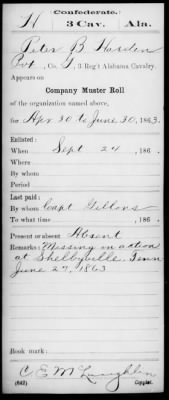 Confederate.
H 3 Cav. Ala.
Peter B. Harden
Pvt, Co. I, 3 Reg't Alabama Cavalry.
Appears on
Company Muster Roll
of the organization named above,
for Apr 30 to June 30, 1863.
Enlisted:
When Sept 24, 186 .
Where
By whom
Period
Last paid:
By whom Capt Gibbons
To what time , 186 .
Present or absent Absent
Remarks: Missing in action
at Shelbyville Tenn
June 27, 1863
Book mark:
C. E. McLaughlin
(642) Copyist.